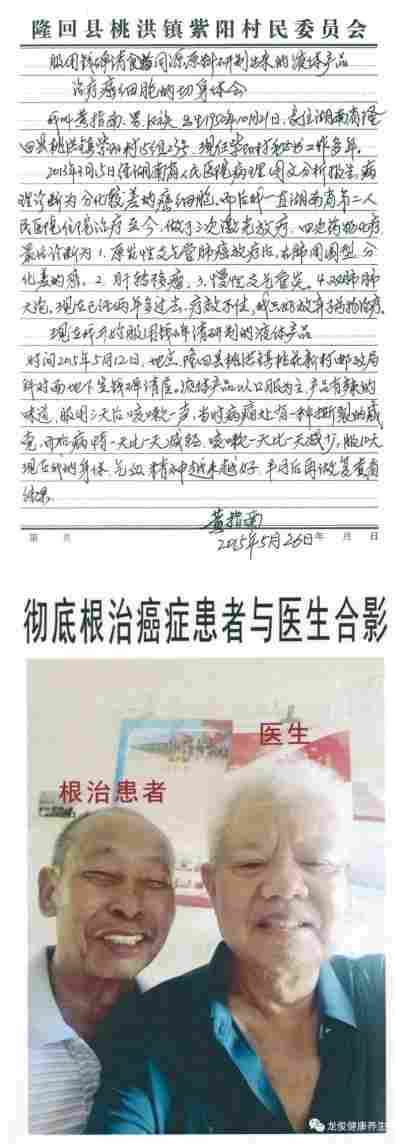 隆回县桃洪镇紫阳村民委员会
服用钱碑清食药同源原料研制出来的液体产品
治疗癌细胞的切身体会
我叫黄指南，男，汉族，出生1950年10月21日，家住湖南省隆
回县桃洪镇紫阳村15组2号，现任紫阳村
2013年3月5日经湖南省人民医院病理图文分析报告，病
理诊断为分化较差的癌细胞，而后我一直湖南省第二人
民医院住院治疗至今，做了2次激光放疗，四次药物化疗，
最后诊断为1.原发性支气管肺癌放疗后，右肺周围型，分
化差的癌，2.肝转移癌，3.慢性支气管炎，4.双肺肺
大泡，现在已经两年多过去，疗效不佳，我只好放弃药物治疗。
现在我开始服用钱碑清研制的液体产品
时间2015年5月12日，地点，隆回县桃洪镇桃花新村邮政局
斜对面地下室钱碑清屋。液体产品以口服为主，产品有辣的
味道，服用三天后咳嗽一声，当时病痛处有一种撕裂的感
觉，而后病情一天比一天减轻，咳嗽一天比一天减少，服10天
现在我的身体、气色、精神越来越好，半月后再做复查看
结果。
黄指南
2015年5月26日
第 页 年 月 日
彻底根治癌症患者与医生合影
医生
根治患者
龙俊健康养生